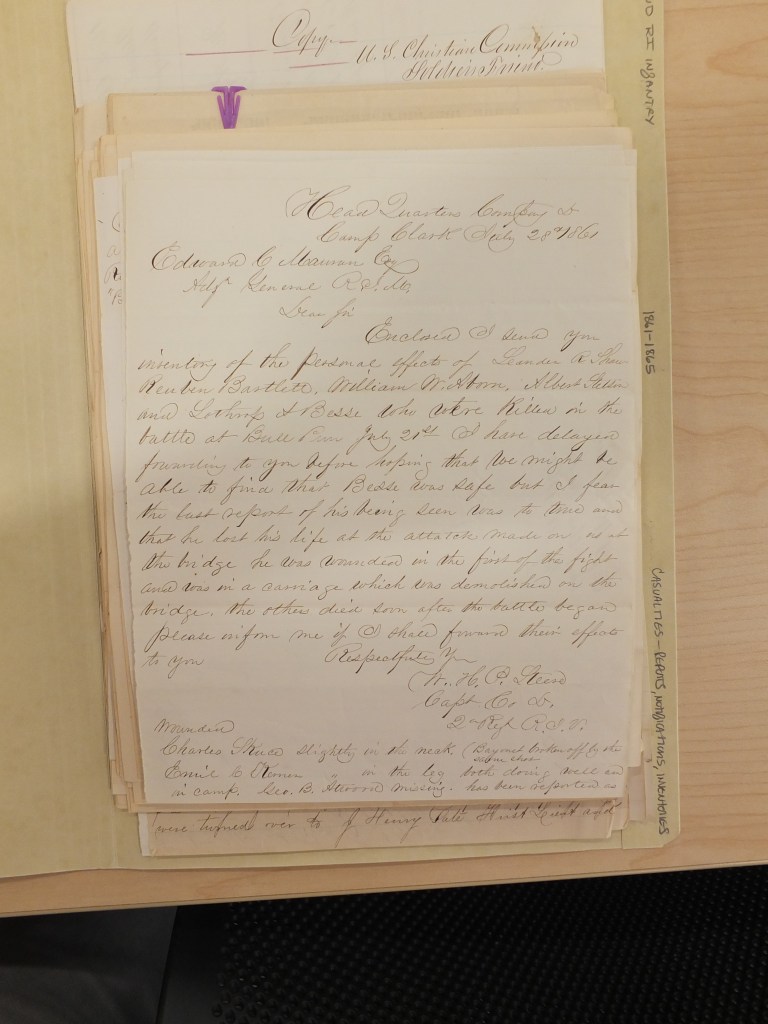 Copy.
U. S. Christian Commission
Soldier's Friend.
Head Quarters Company D
Camp Clark July 28th 1861
Edward C Mauran Esq
Adjt General R.I.M.
Dear Sir
Enclosed I send you
inventory of the personal effects of Leander R. Shaw
Reuben Bartlett. William W. Aborn. Albert
and Lothrop Besse who were killed in the
battle at Bull Run July 21st I have delayed
fowarding to you before hoping that we might be
able to find that Besse was safe but I fear
the last report of his being seen was to true and
that he lost his life at the attatck made on us at
the bridge he was wounded in the first of the fight
and was in a carriage which was demolished on the
bridge. the others died soon after the battle began
please inform me if I shall foward their effects
to you Respectfully Yrs
W. H. P. Steere
Capt Co D.
2nd Regt R.I.V.
Wounded
Charles slightly in the neck. (Bayonet broken off by the
same shot
Emil E " in the leg both doing well and
in camp. Geo. B. Atwood missing. has been reported as
were turned over to J Henry First Lieut
D RI INFANTRY
1861-1865
CASUALTIES - REPORTS, NOTIFICATIONS, INVENTORIES